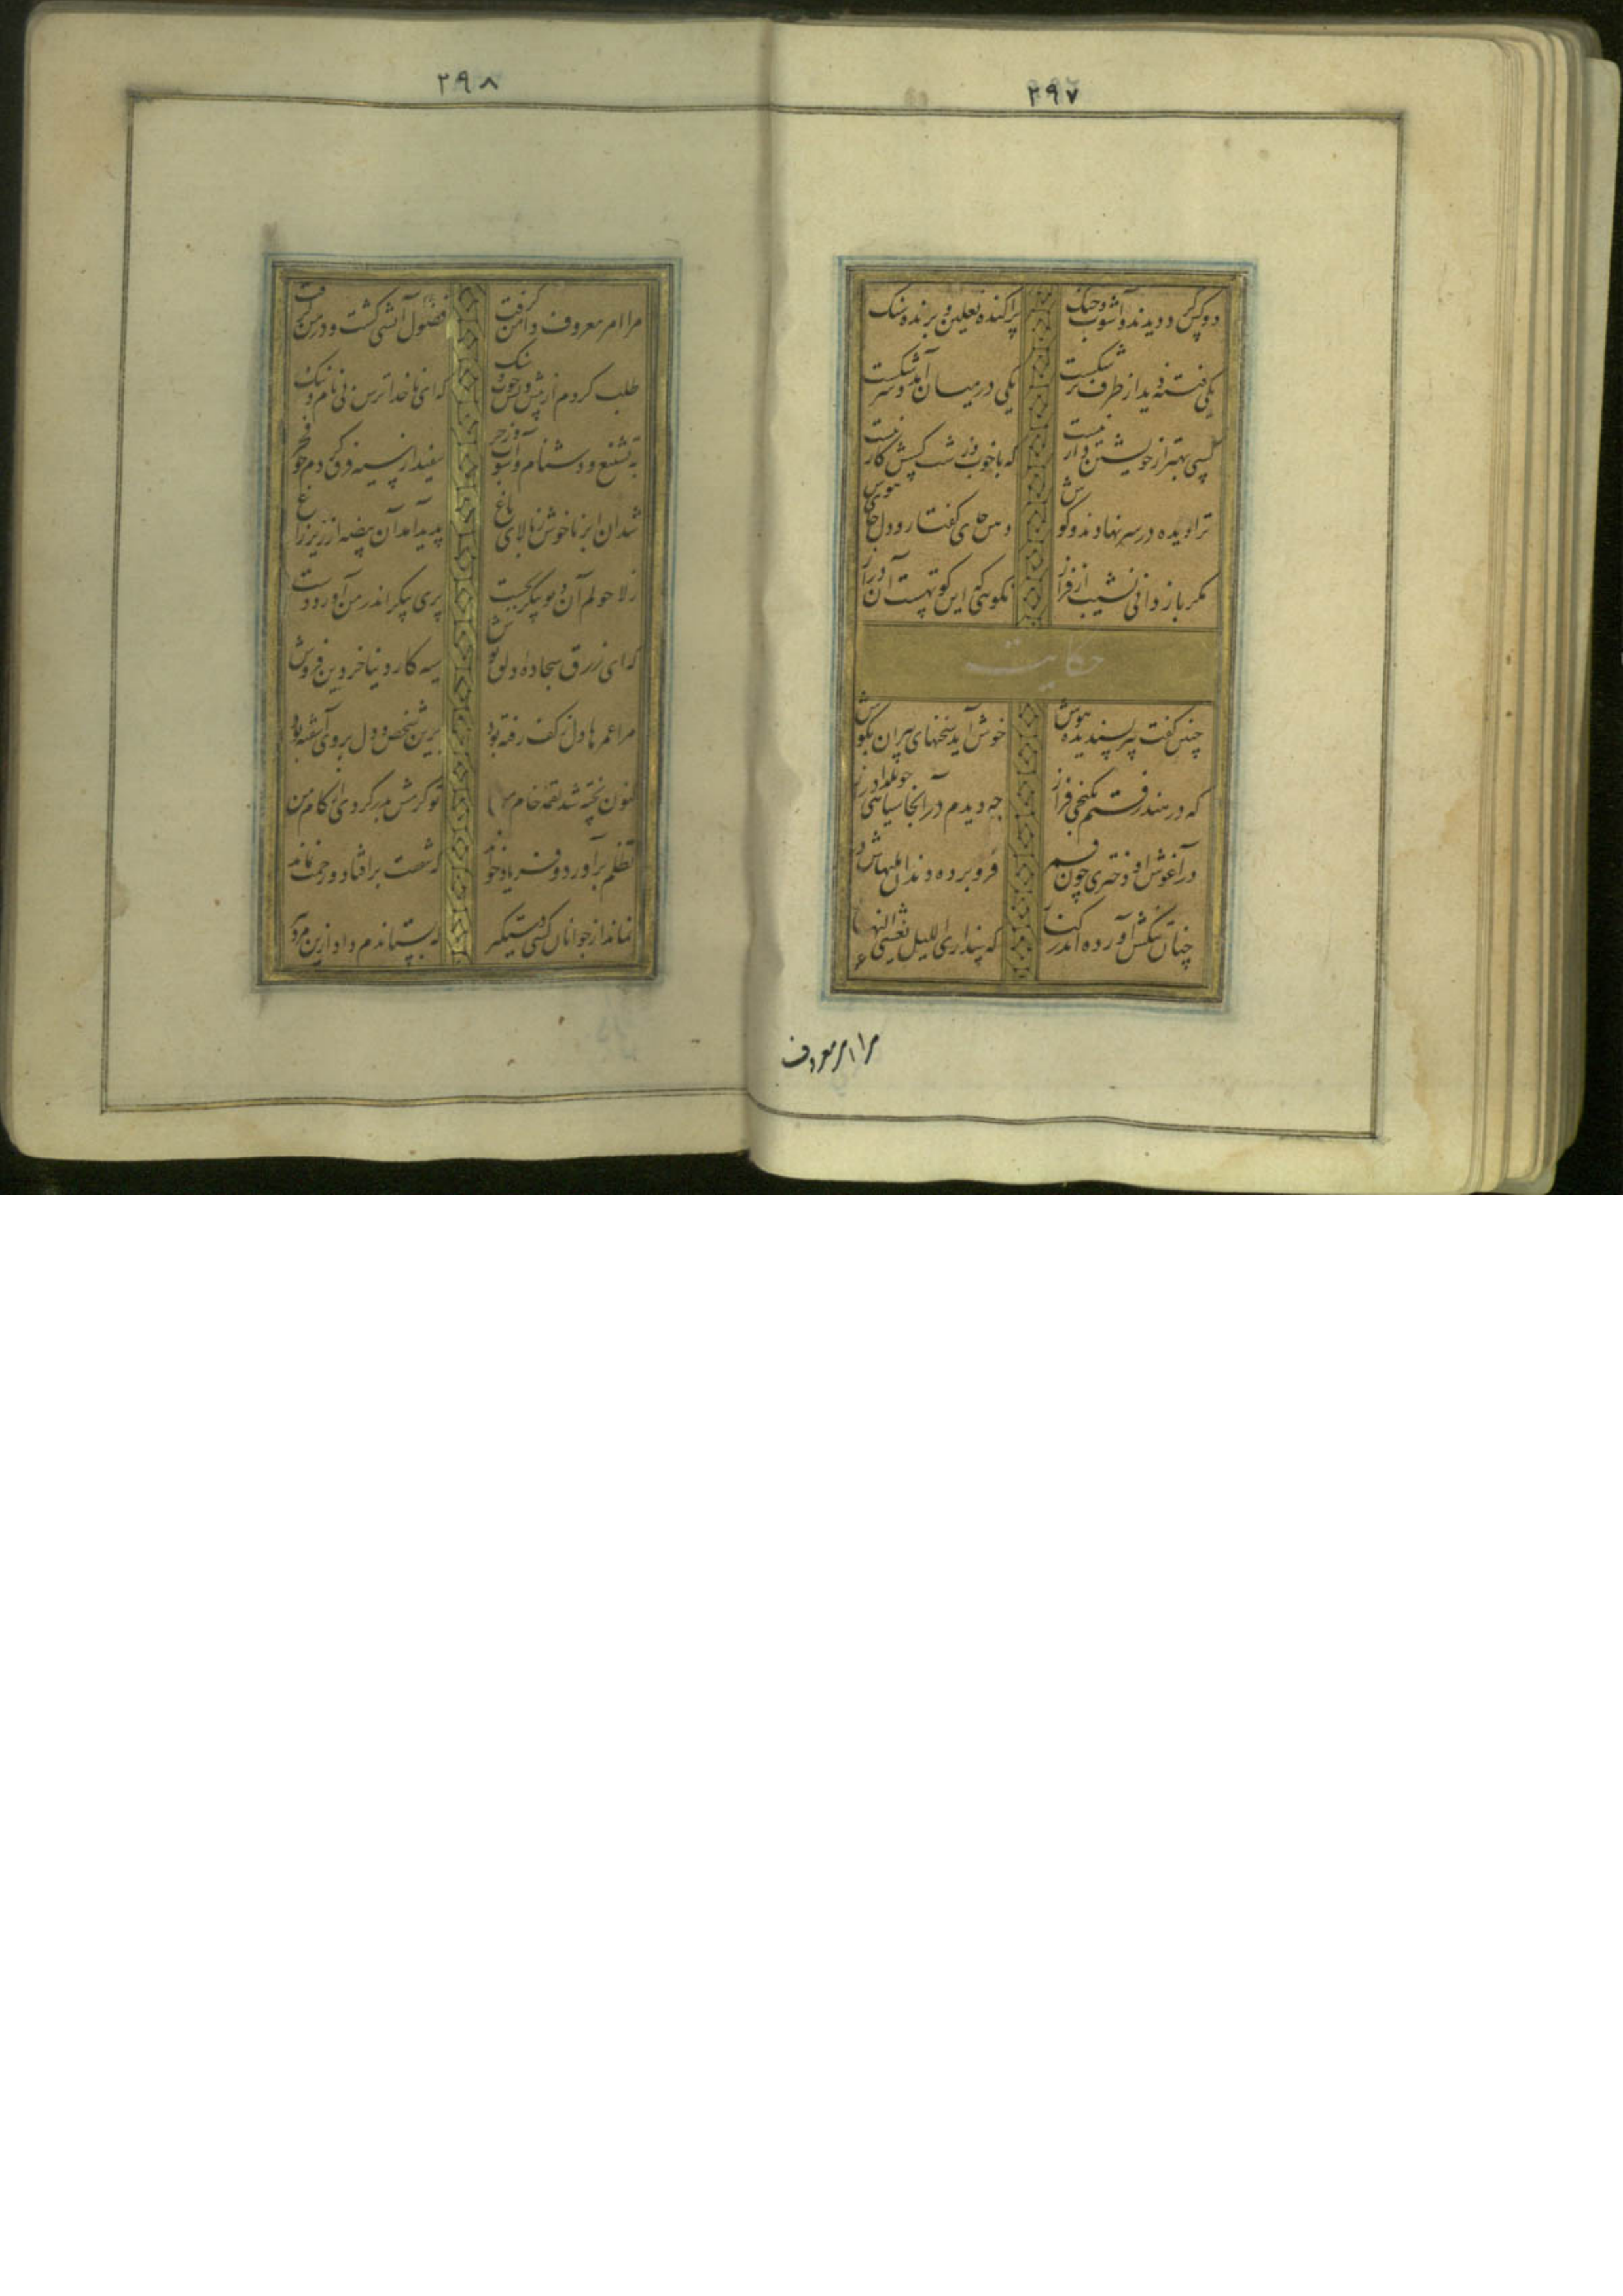 ۲۹۷
دو کس دویدند و آشوب و جنگ
پراکنده نعلین و پرنده سنگ
یکی فتنه دید از طرف بر شکست
یکی در میان آمد و سر شکست
کسی بهتر از خویشتن دار نیست
که با خوب و زشت کسش کار نیست
ترا دیده در سر نهادند و گوش
دهن جای گفتار و دل جای هوش
مگر بازدانی نشیب از فراز
نگوئی که این کوتهست آن دراز
حکایت
چنین گفت پیر پسندیده هوش
خوش آید سخنهای پیران بگوش
که در هند رفتم بکنجی فراز
چه دیدم در آنجا سیاهی چو یلدا دراز
در آغوش او دختری چون قمر
فرو برده دندان بلبهاش در
چنان تنگش آورده اندر کنار
که پنداری اللیل یغشی النهار
مرا امر معروف
۲۹۸
مرا امر معروف دامن گرفت
فضول آتشی گشت و در من گرفت
طلب کردم از پیش و پس چوب و سنگ
که ای ناخداترس بی نام و ننگ
به تشنیع و دشنام و آشوب و زجر
سفید از سیه فرق کردم چو فجر
شد آن ابر ناخوش ز بالای باغ
پدید آمد آن بیضه از زیر زاغ
ز لاحولم آن دیو پیکر بجست
پری پیکر اندر من آورد دست
که ای زرق سجاده دلق پوش
سیه کار دنیا خر دین فروش
مرا عمرها دل ز کف رفته بود
برین شخص و دل بروی آشفته بود
کنون پخته شد لقمه خام من
که گرمش بدر کردی از کام من
تظلم برآورد و فریاد خواند
که شفقت برافتاد و رحمت نماند
نماند از جوانان کسی دستگیر
که بستاندم داد ازین مرد پیر